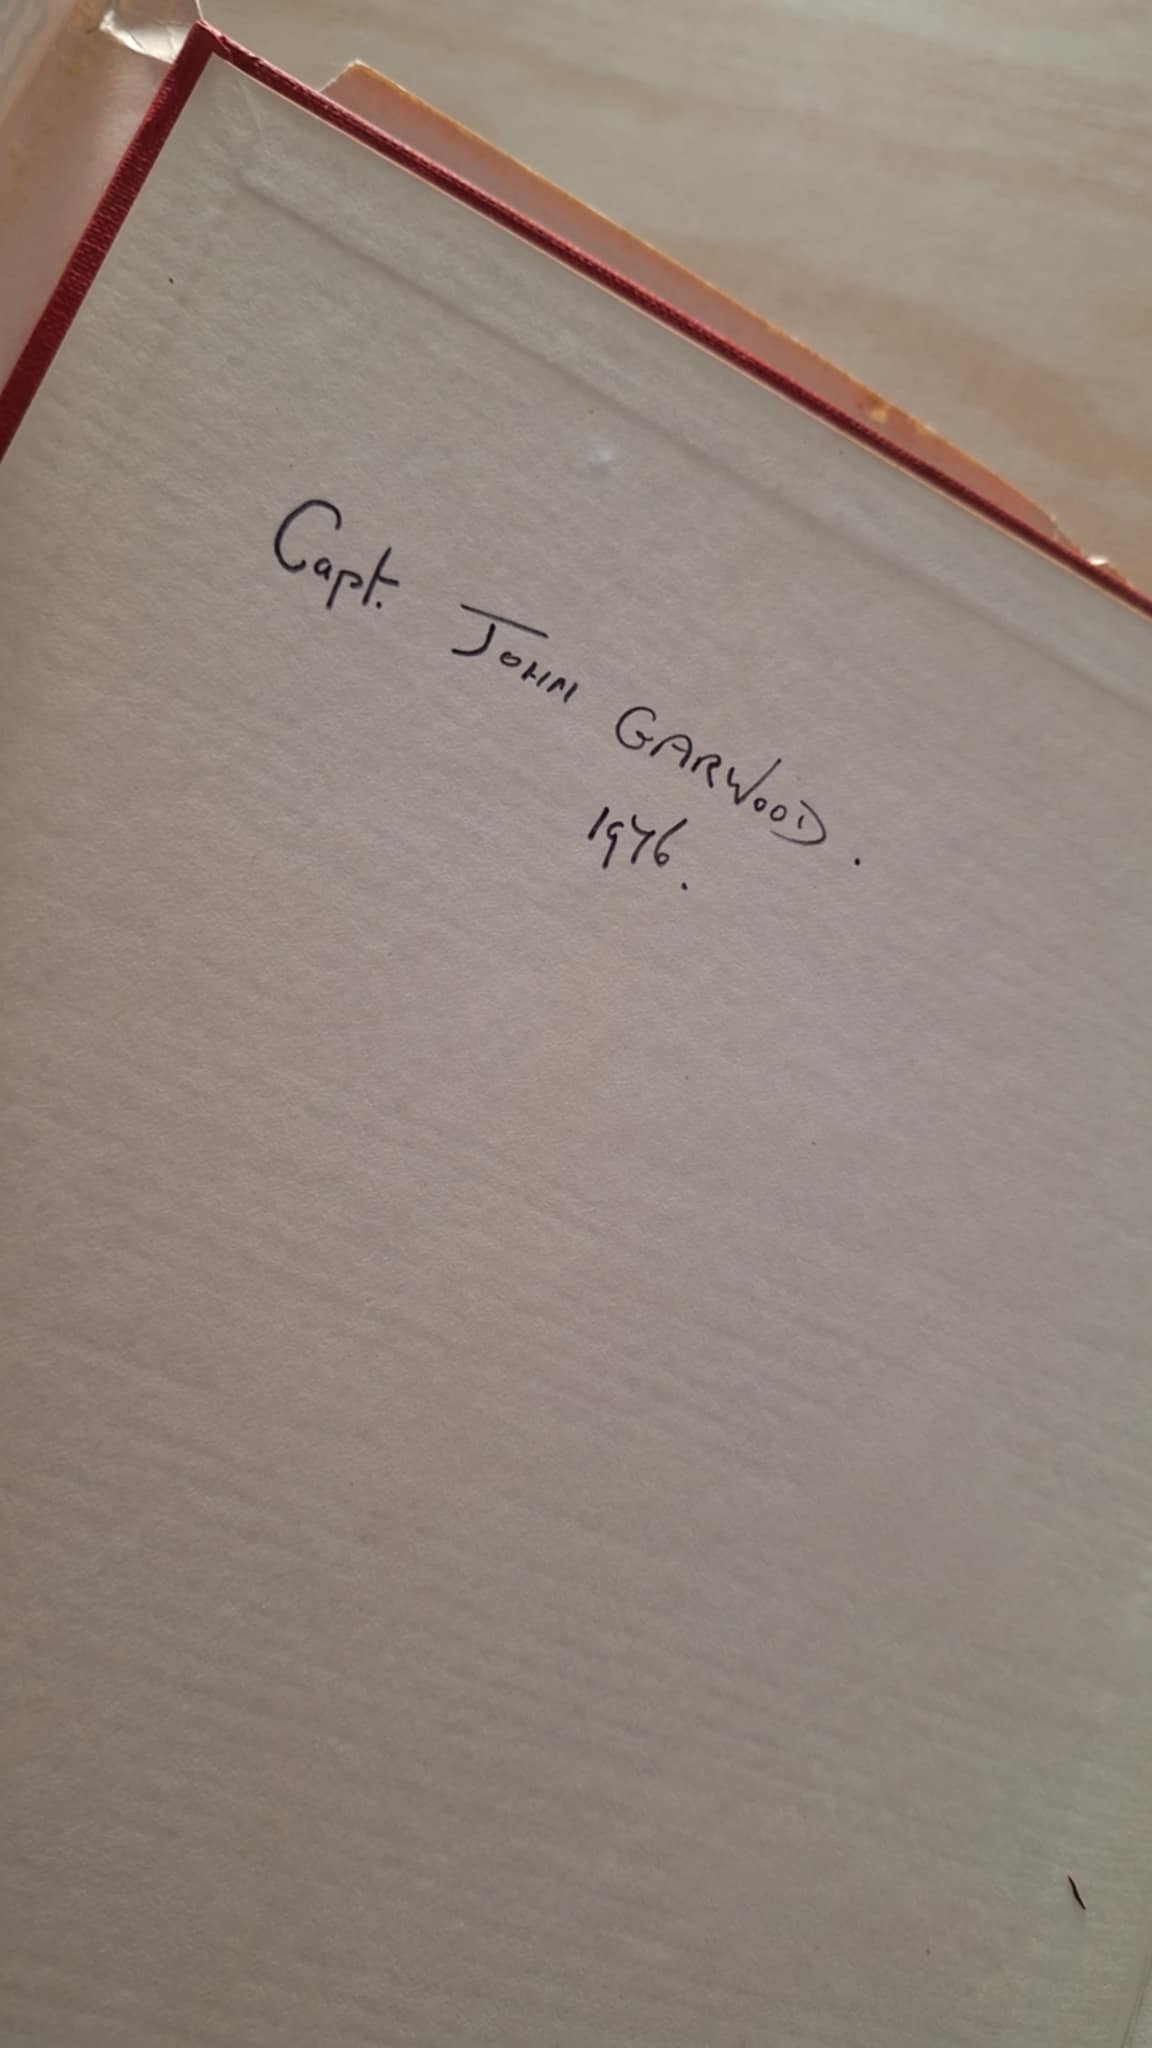 Capt. JOHN GARWOOD.
1976.